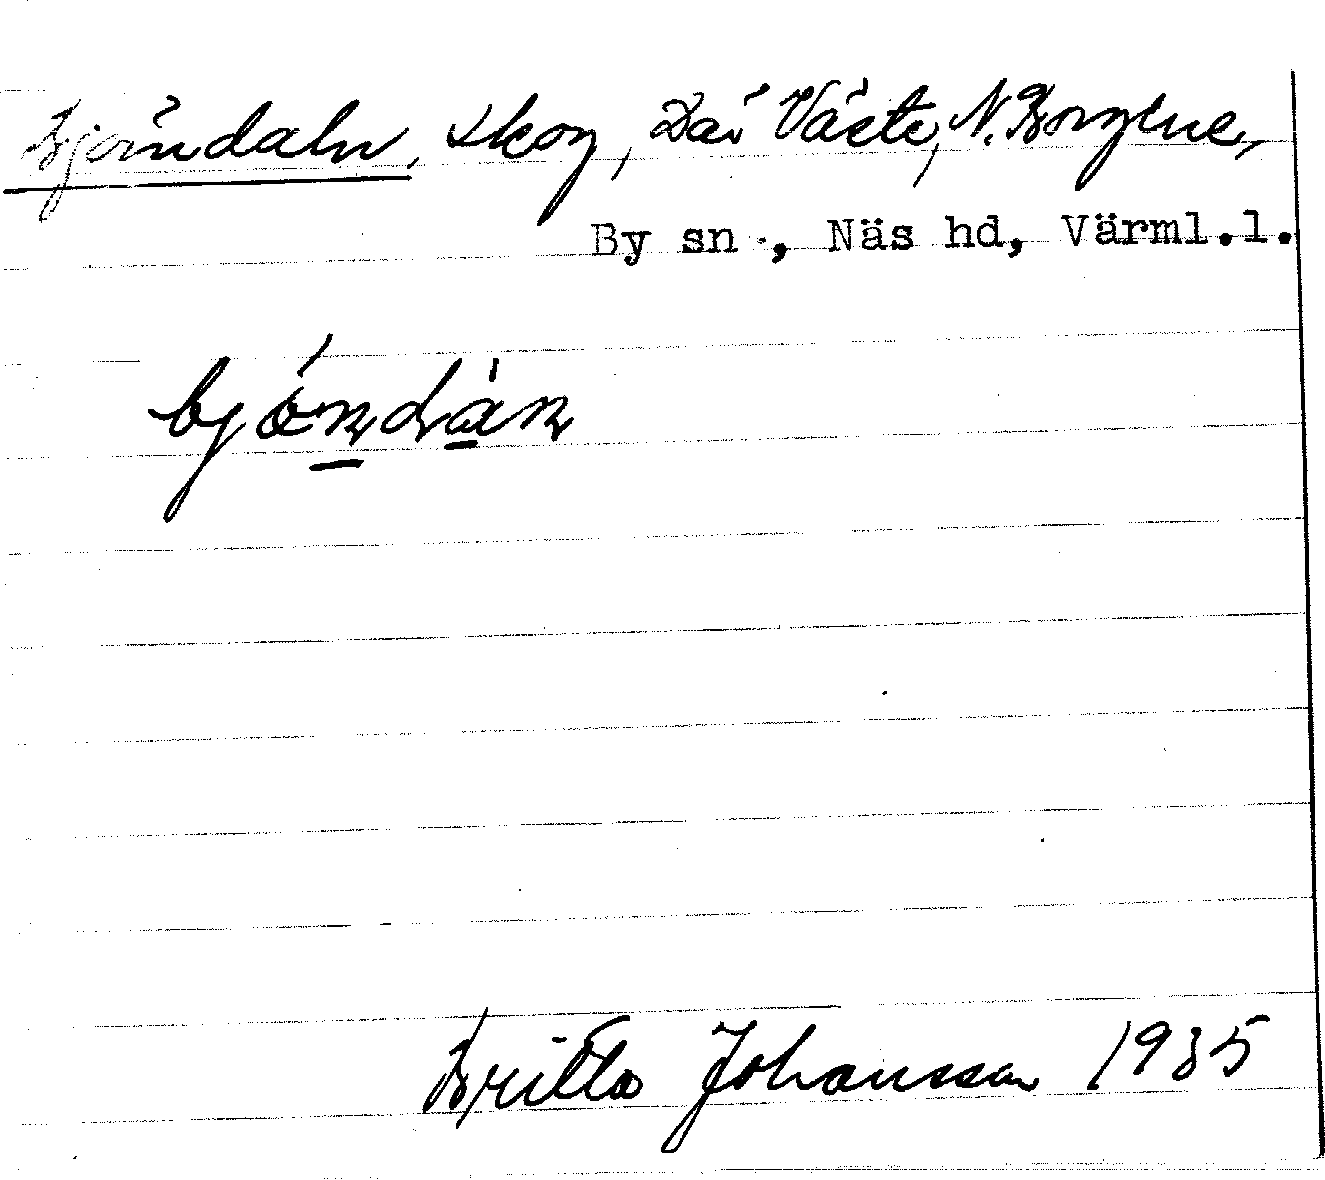 Björndalen, skog, Där Väste, N. Borgene,
By sn., Näs hd, Värml.l.
bjö́ṉdàṉ
Britta Johansson 1935